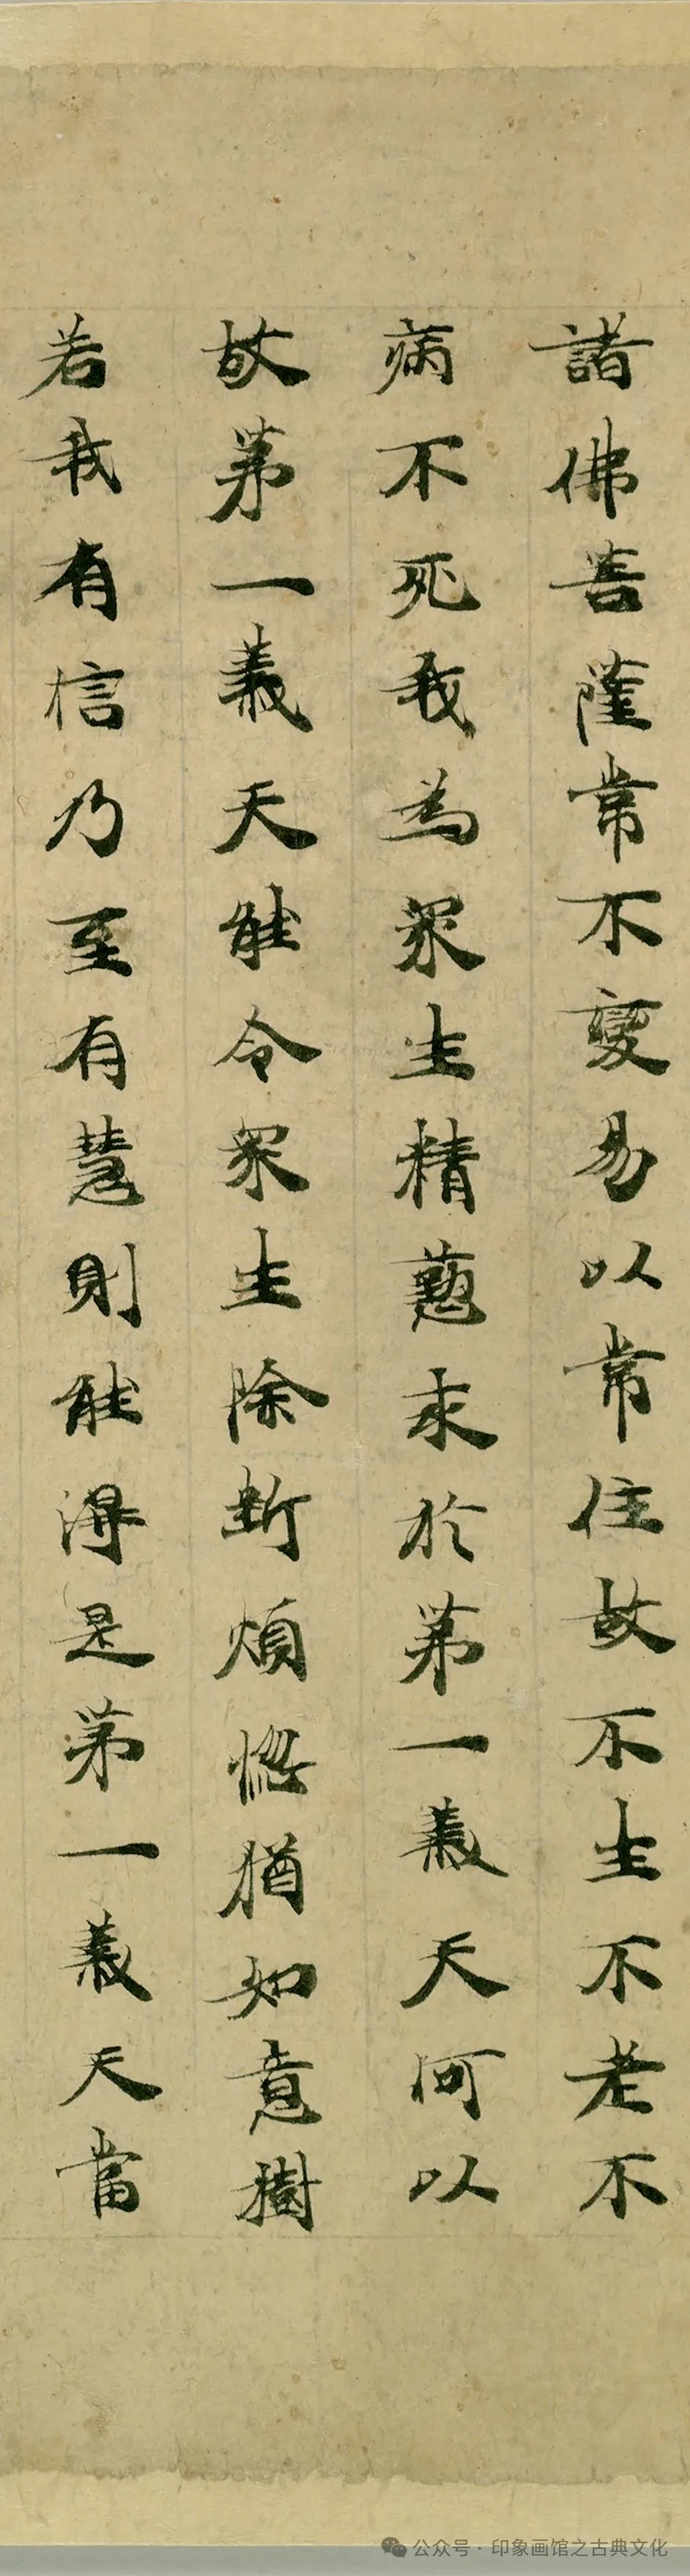 諸佛菩薩常不變易以常住故不生不老不
病不死我為衆生精懃求於第一義天何以
故第一義天能令衆生除斷煩惱猶如意樹
若我有信乃至有慧則能得是第一義天當
公众号·印象画馆之古典文化